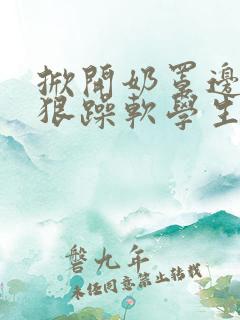 掀開奶罩邊
狠躁軟學生
磬九年
未经同意禁止转载